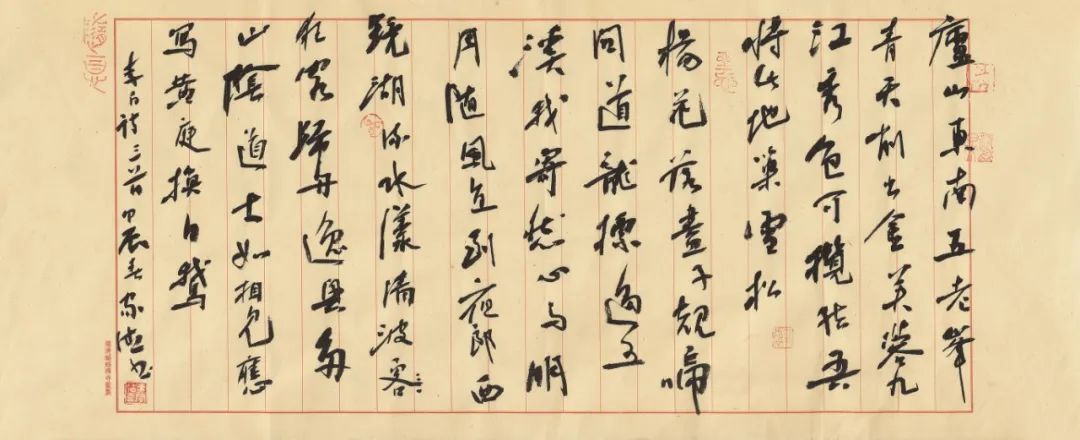 廬山東南五老峰
青天削出金芙蓉九
江秀色可攬結吾
將此地巢雲松
楊花落盡子規啼
聞道龍標過五
溪我寄愁心與明
月随風直到夜郎西
鏡湖流水漾清波
狂客歸舟逸興多
山陰道士如相見應
写黄庭換白鵝
李白詩三首甲辰春